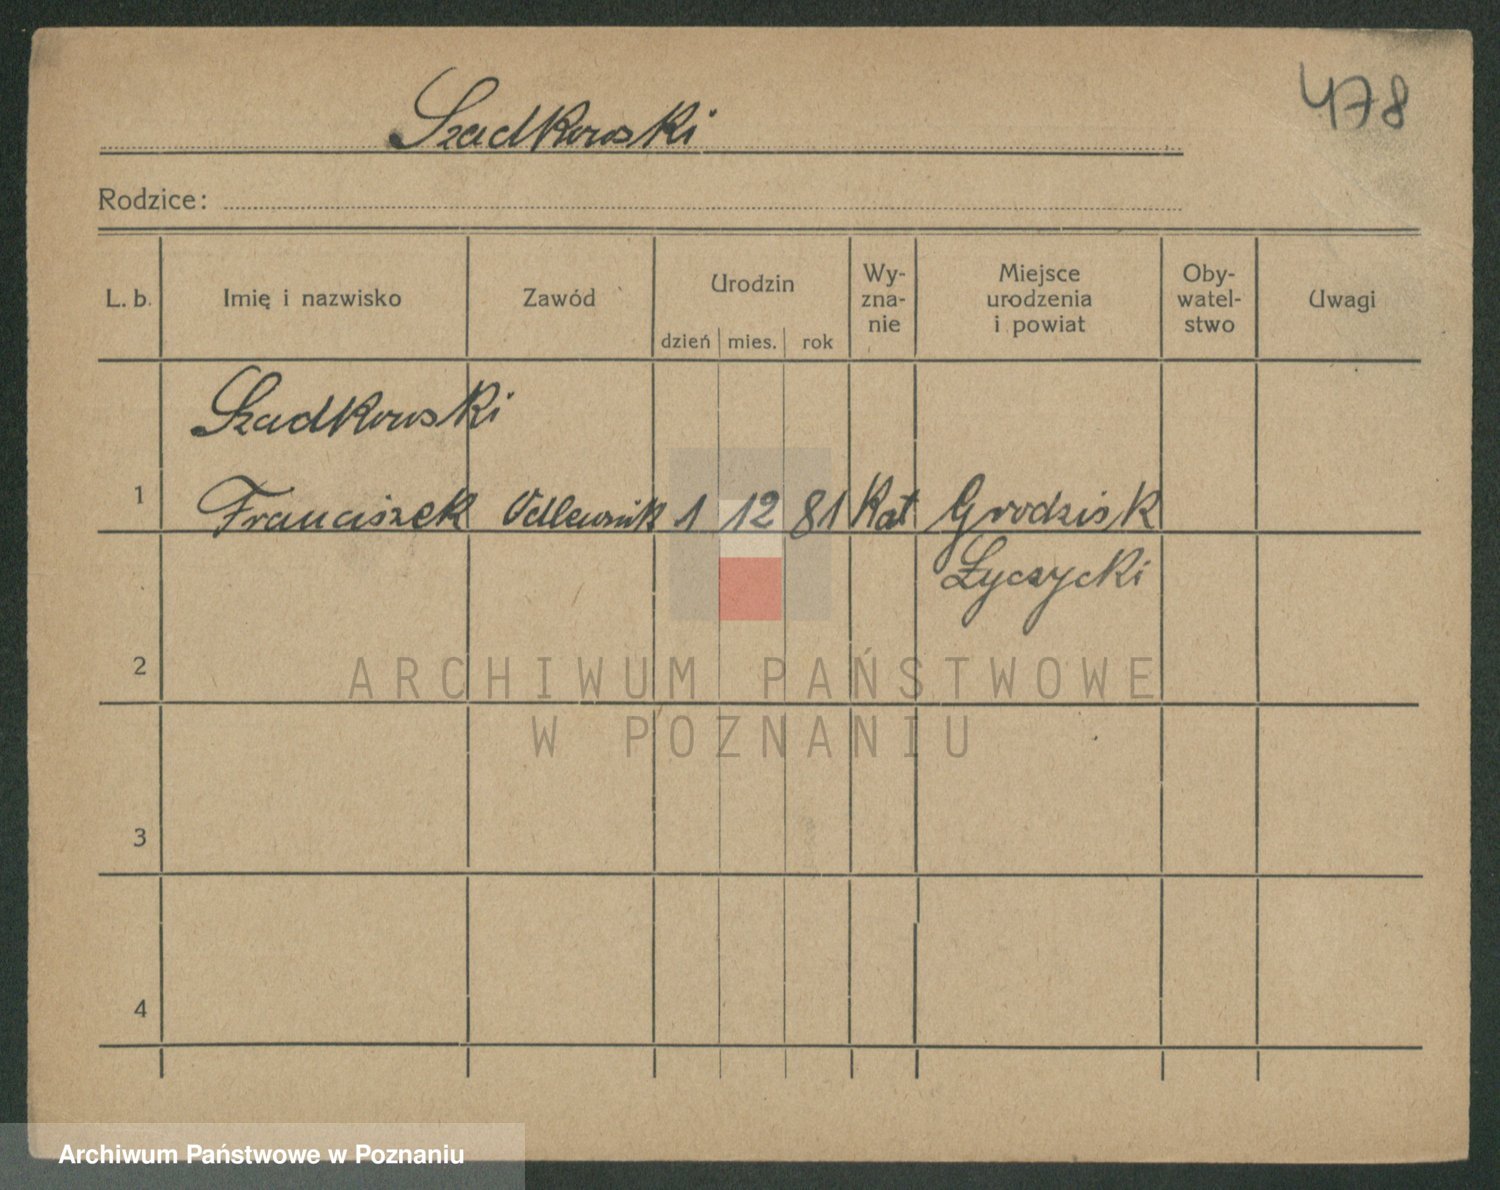 478
Szadkowski
Rodzice:
L. b. Imię i nazwisko Zawód Urodzin dzień mies. rok Wy-zna-nie Miejsce urodzenia i powiat Oby-watel-stwo Uwagi
Szadkowski
1 Franciszek Odlewnik 1 12 81 Kat Grodzisk
Łyczycki
2
ARCHIWUM PAŃSTWOWE
W POZNANIU
3
4
Archiwum Państwowe w Poznaniu